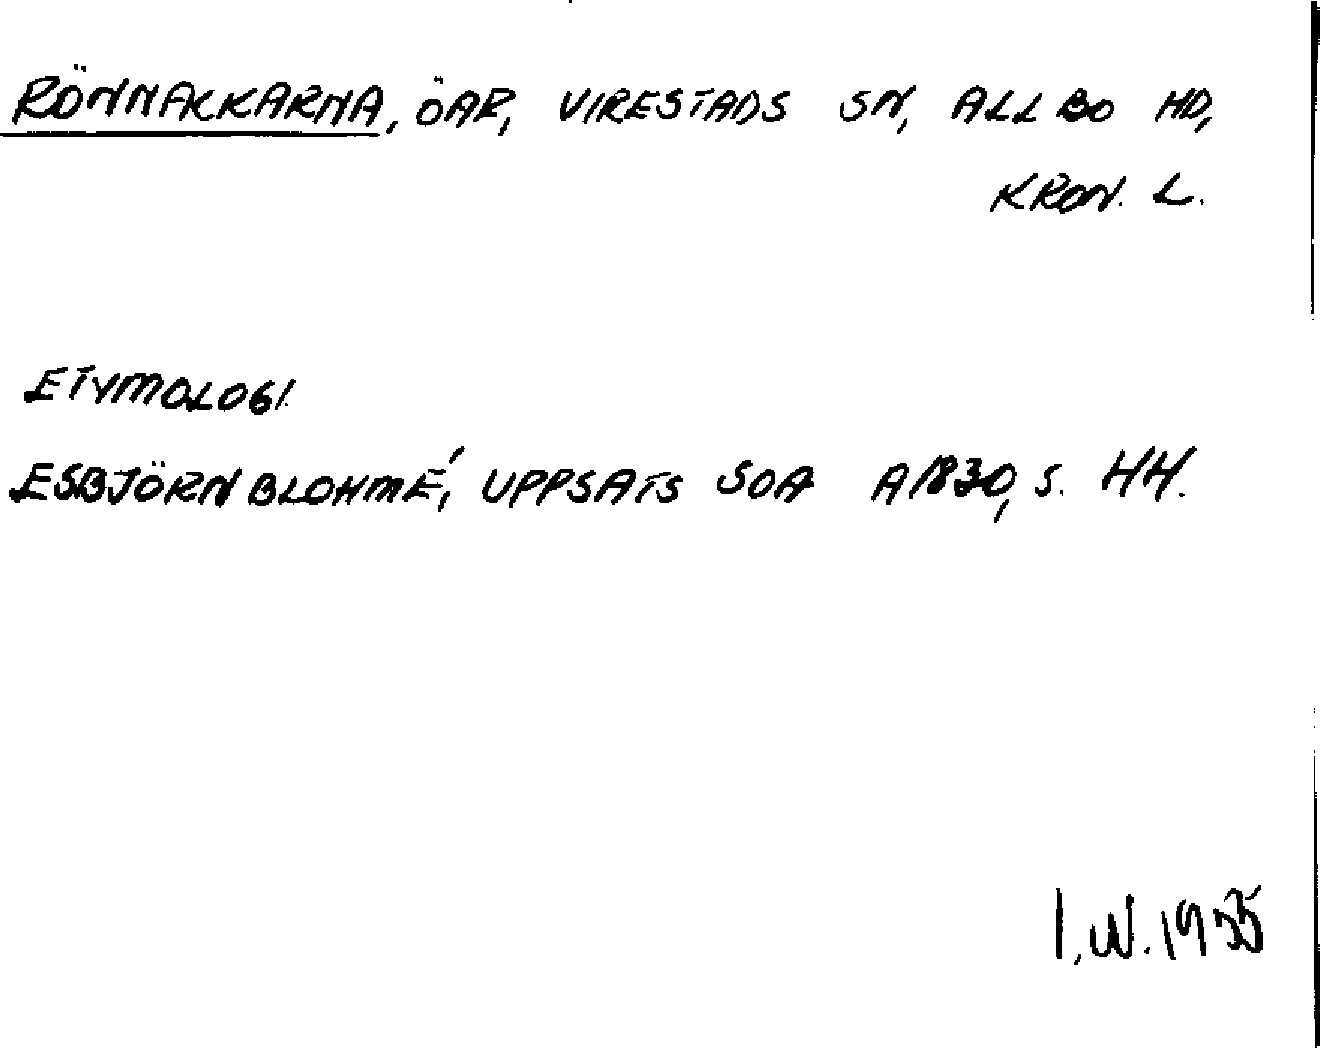 RÖNNACKARNA, ÖAR, VIRESTADS SN, ALLBO HD,
KRON. L.
ETYMOLOGI
ESBJÖRN BLOHMÉ, UPPSATS SOA A1830, S. 44.
I.W. 1955